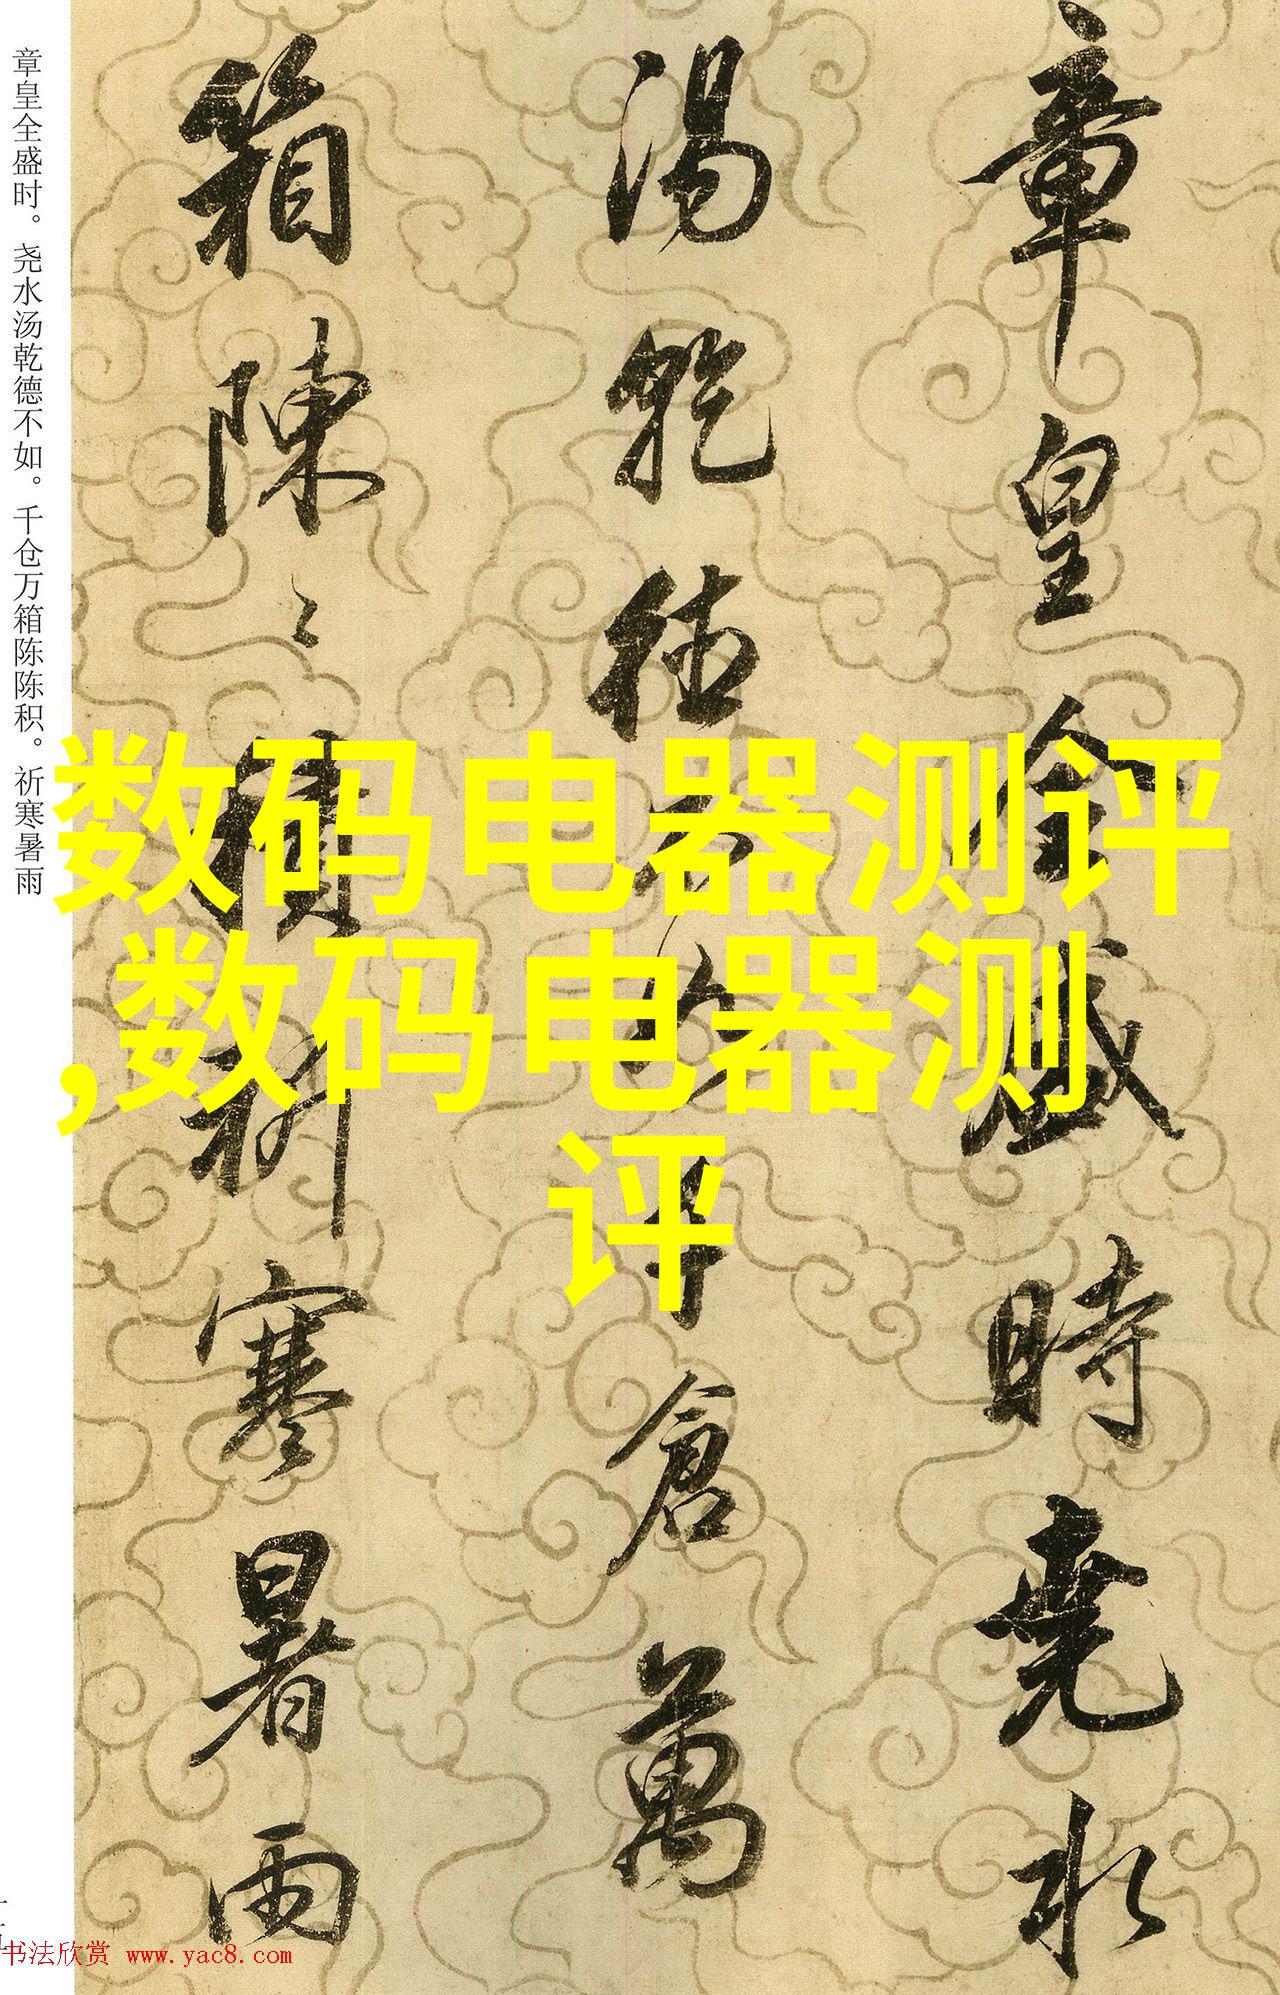 章皇全盛時堯水
湯乾德不如千倉萬
箱陳〻積祈寒暑雨
章皇全盛时。尧水汤乾德不如。千仓万箱陈陈积。祈寒暑雨
数码电器测评
,数码电器测
评
书法欣赏 www.yac8.com